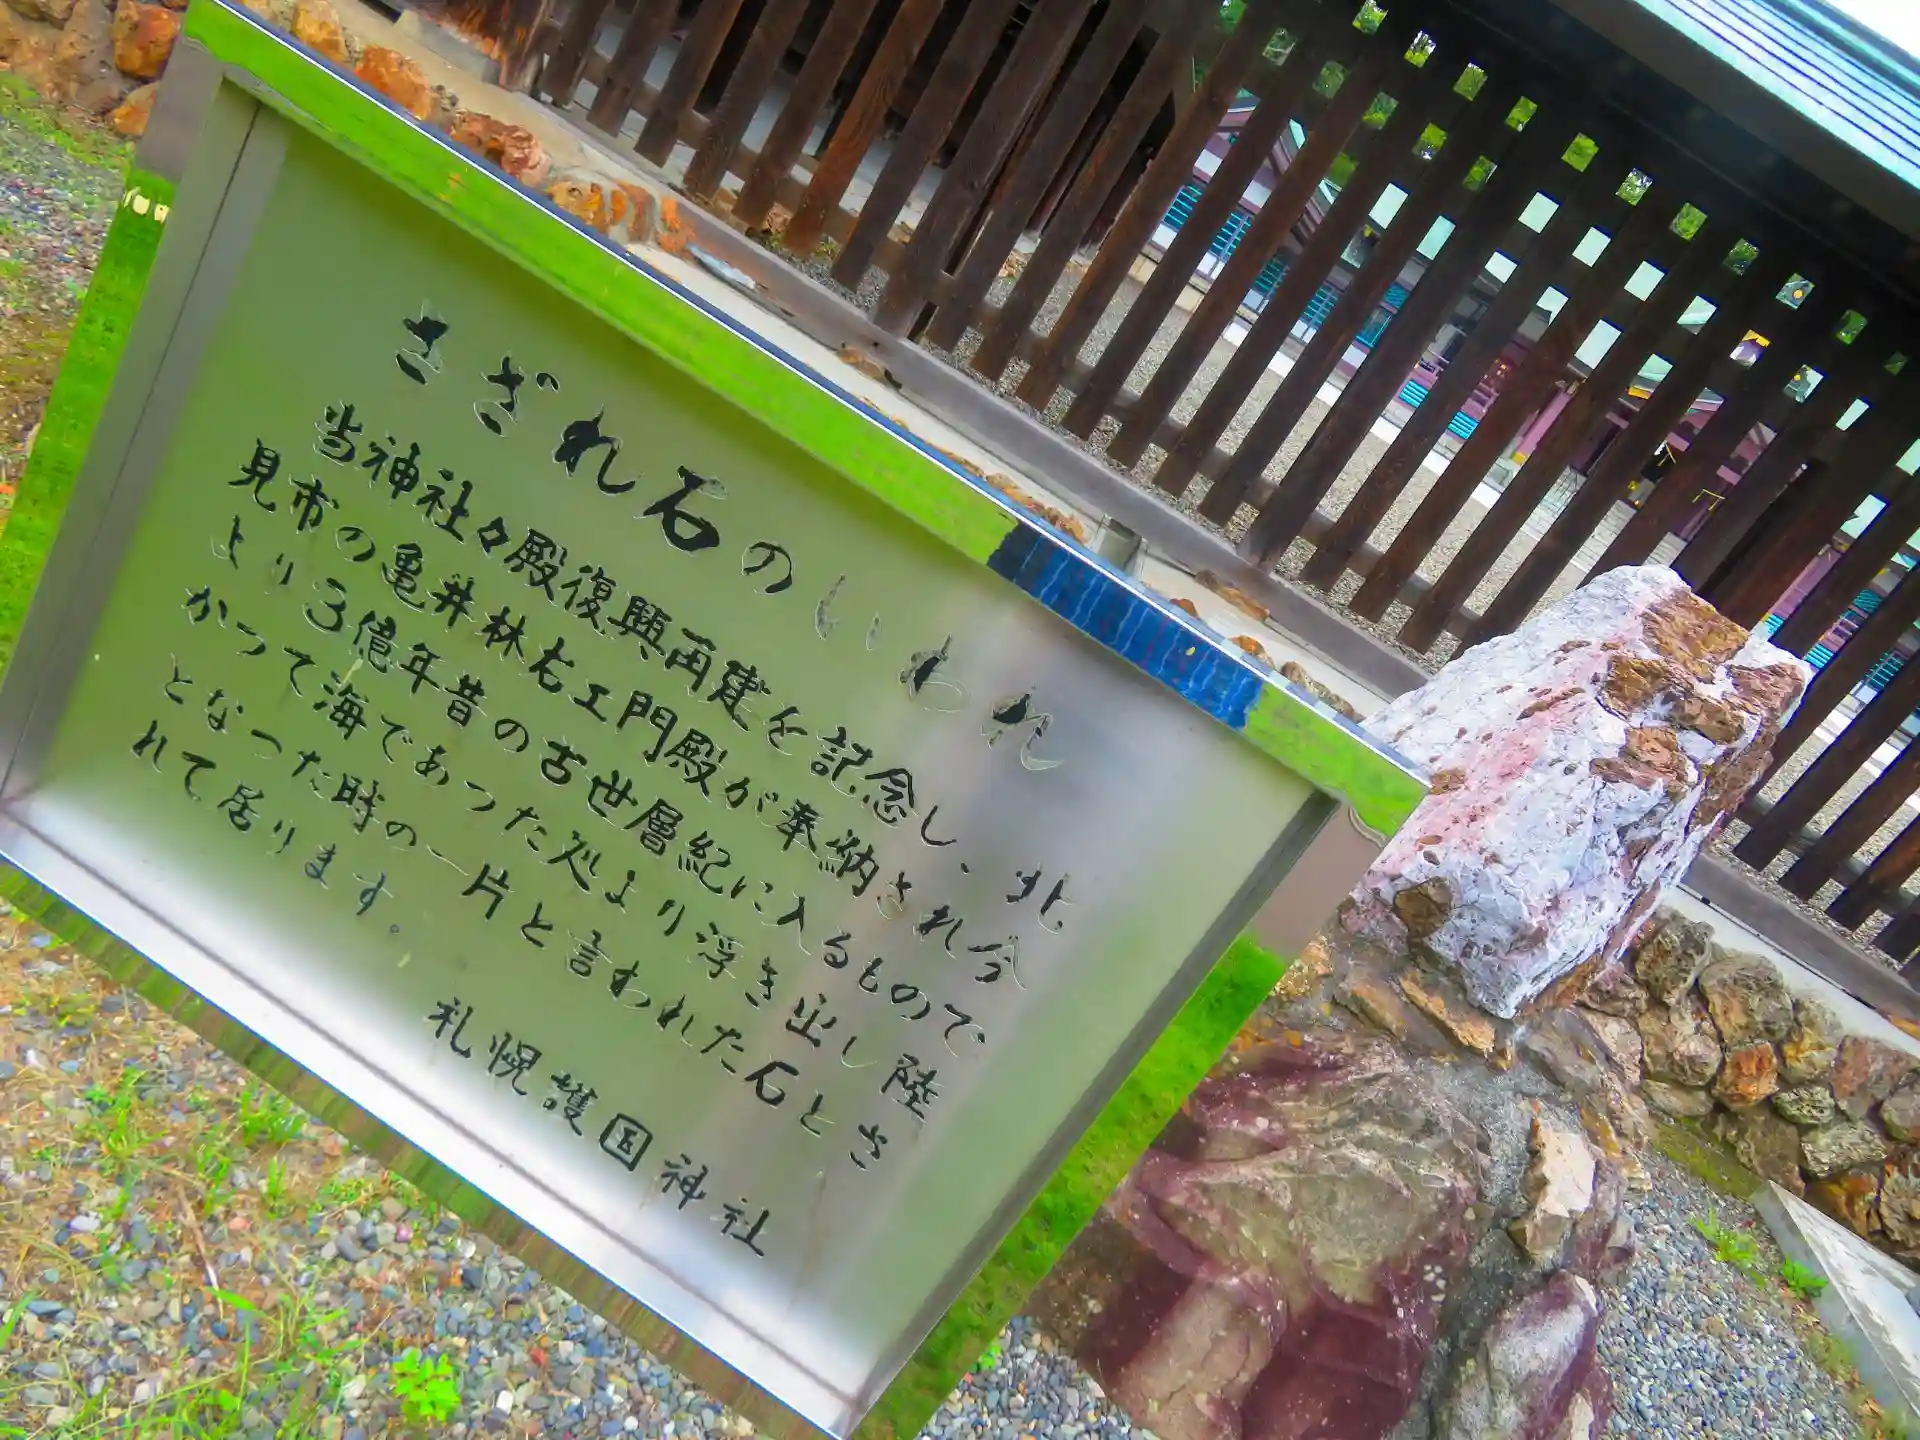 さざれ石のいわれ
当神社々殿復興再建を記念し、北
見市の亀井林右エ門殿が奉納され今
より3億年昔の古世層紀に入るもので
かつて海であった処より浮き出し陸
となった時の一片と言われた石とさ
れて居ります。
札幌護国神社